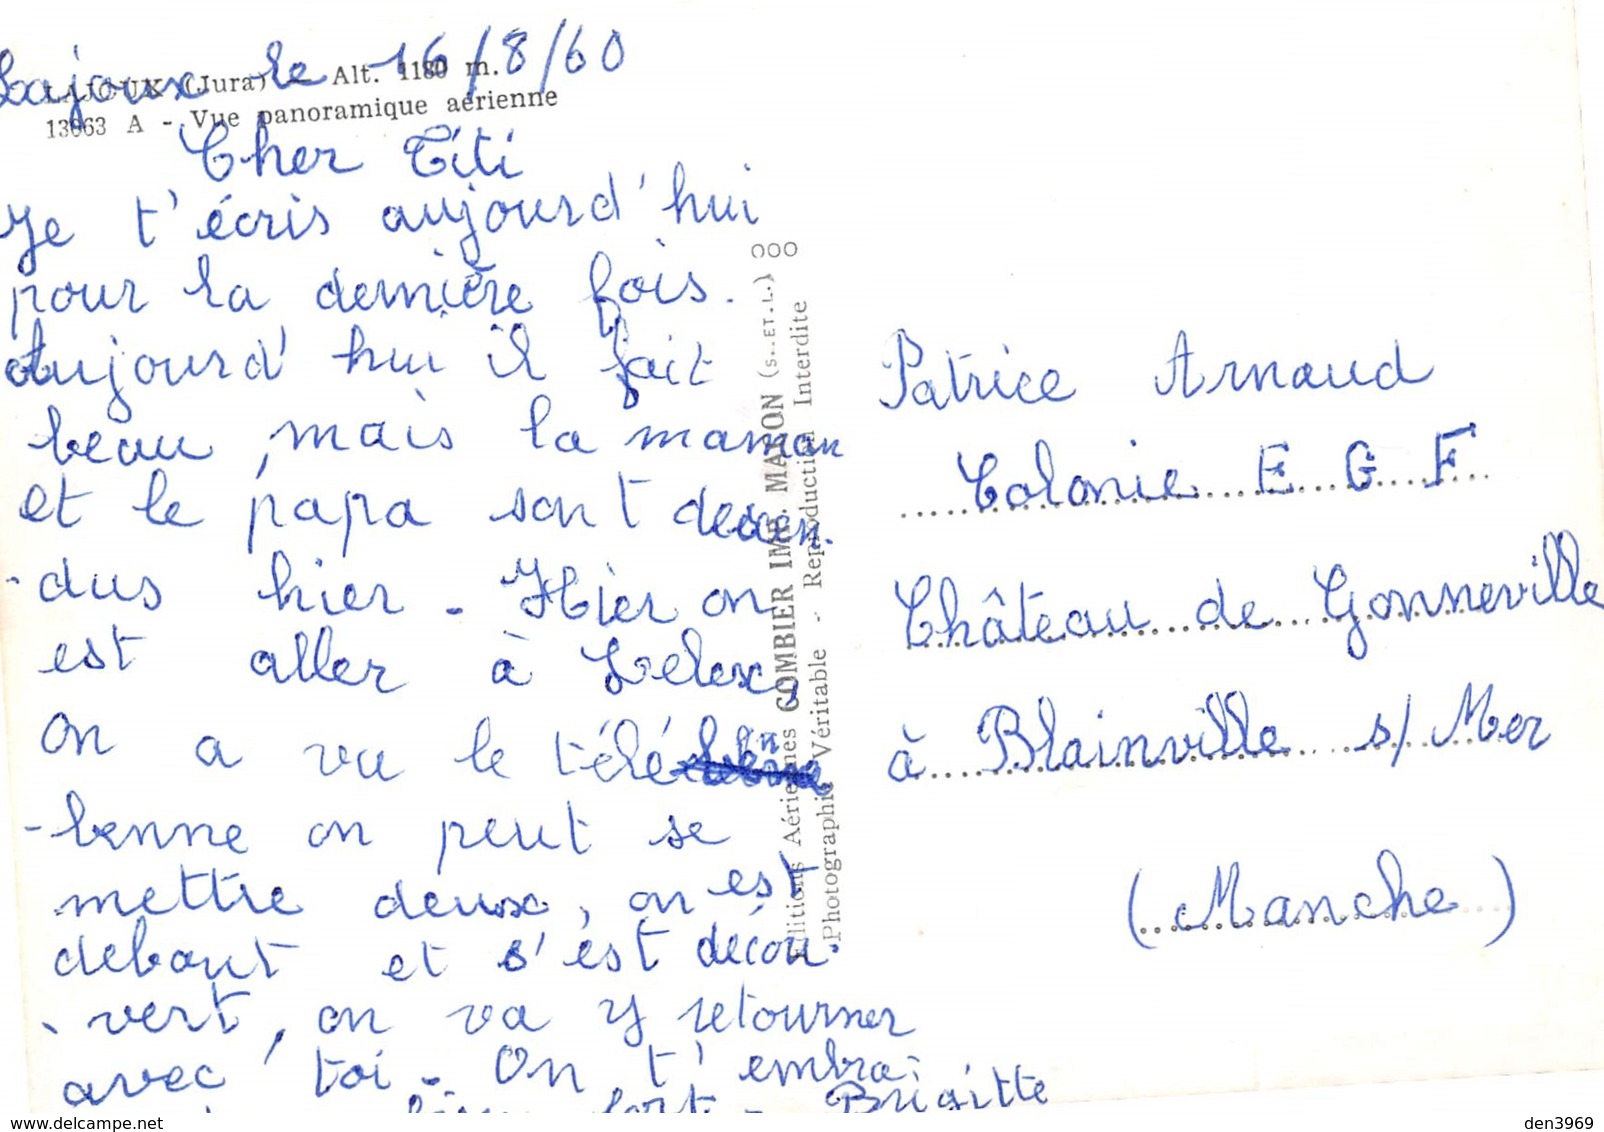 Lajoux le 16/8/60
LAJOUX (Jura) - Alt. 1180 m.
13063 A - Vue panoramique aérienne
Cher Titi
Je t'écris aujourd'hui
pour la dernière fois.
Aujourd'hui il fait
beau, mais la maman
et le papa sont descen-
-dus hier - Hier on
est aller à Lelex,
on a vu le télé
-benne on peut se
mettre deux, on est
debout et s'est décou-
-vert, on va y retourner
avec toi - On t'embra-
bien fort - Brigitte
Editions Aériennes COMBIER IMP. MACON (S.-ET-L.) 000
Photographie Véritable - Reproduction Interdite
Patrice Arnaud
Colonie E G F
Château de Gonneville
à Blainville s/ Mer
(Manche)
delcampe.net
den3969